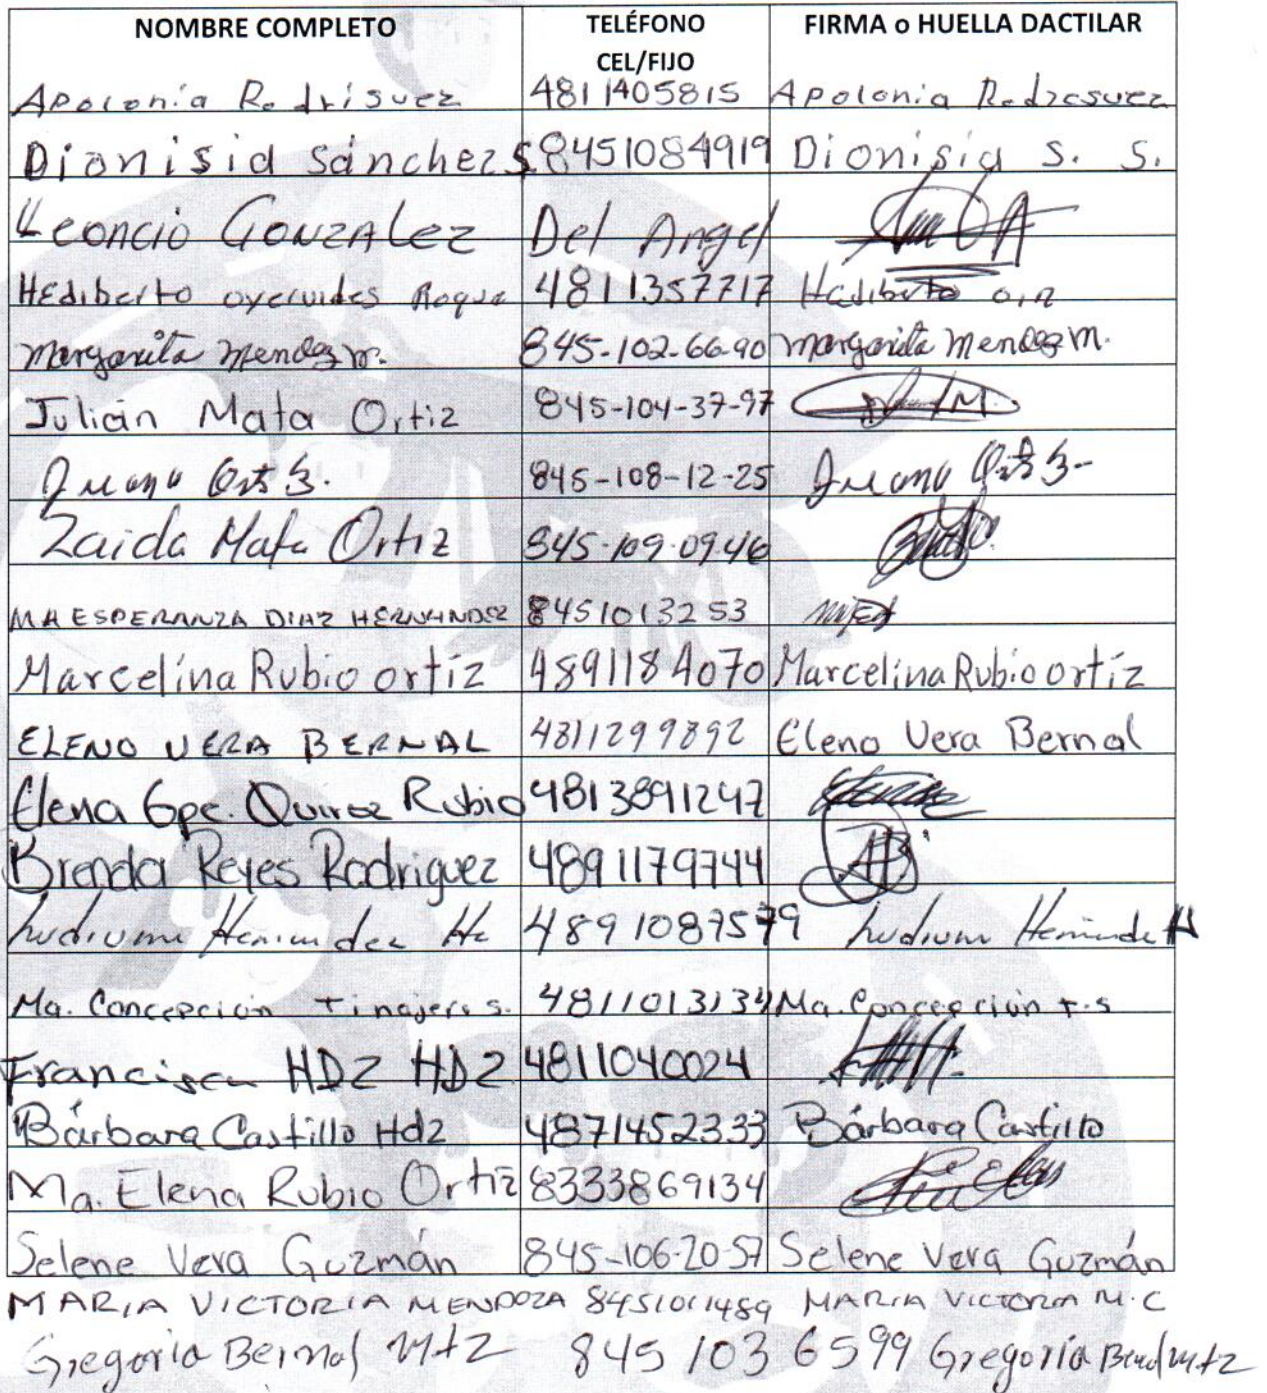 NOMBRE COMPLETO TELÉFONO CEL/FIJO FIRMA o HUELLA DACTILAR
Apolonia Rodriguez 4811405815 Apolonia
Dionisia Sánchez S. 8451084919 Dionisia S. S.
Leoncio GONZALEZ Del Angel
HEdiberto oyervides Roque 4811357717 Hediberto O.R
Margarita Mendez m. 845-102-66-90 Margarita Mendez m.
Julián Mata Ortiz 845-104-37-97
845-108-12-25
Zaida Mata Ortiz 845-109-09-46
MA ESPERANZA DIAZ HERNANDEZ 8451013253
Marcelína Rubio ortíz 4891184070 Marcelína Rubio ortíz
ELENO VERA BERNAL 4811299892 Eleno Vera Bernal
Elena Gpe. Quiroz Rubio 4813891247
Brenda Reyes Rodriguez 4891179744
4891087579
Ma. Concepción Tinajero s. 4811013134 Ma. Concepción T.S
Francisca HDZ HDZ 4811040024
Bárbara Castillo Hdz 4871452333 Bárbara Castillo
Ma. Elena Rubio Ortiz 8333869134
Selene Vera Guzmán 845-106-20-57 Selene Vera Guzmán
MARIA VICTORIA MENDOZA 8451011489 MARIA VICTORIA M.C
Gregoria Bernal Mtz 845 103 6599 Gregoria Mtz